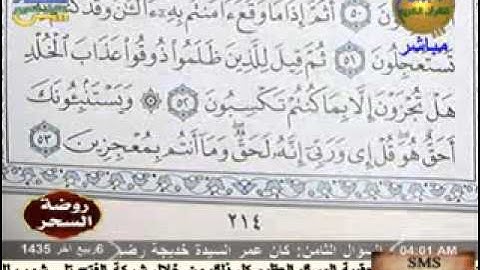 مباشر
أَثُمَّ إِذَا مَا وَقَعَ ءَامَنتُم بِهِۦٓ ءَآلْـَٰٔنَ وَقَدْ كُنتُم
تَسْتَعْجِلُونَ ٥١ ثُمَّ قِيلَ لِلَّذِينَ ظَلَمُوا۟ ذُوقُوا۟ عَذَابَ ٱلْخُلْدِ
هَلْ تُجْزَوْنَ إِلَّا بِمَا كُنتُمْ تَكْسِبُونَ ٥٢ ۞ وَيَسْتَنۢبِـُٔونَكَ
أَحَقٌّ هُوَ قُلْ إِى وَرَبِّىٓ إِنَّهُۥ لَحَقٌّ وَمَآ أَنتُم بِمُعْجِزِينَ ٥٣
٢١٤
روضة
السحر
04:01 AM السؤال الثامن: كان عمر السيدة خديجة رضـ 6 ربيع آخر 1435
SMS